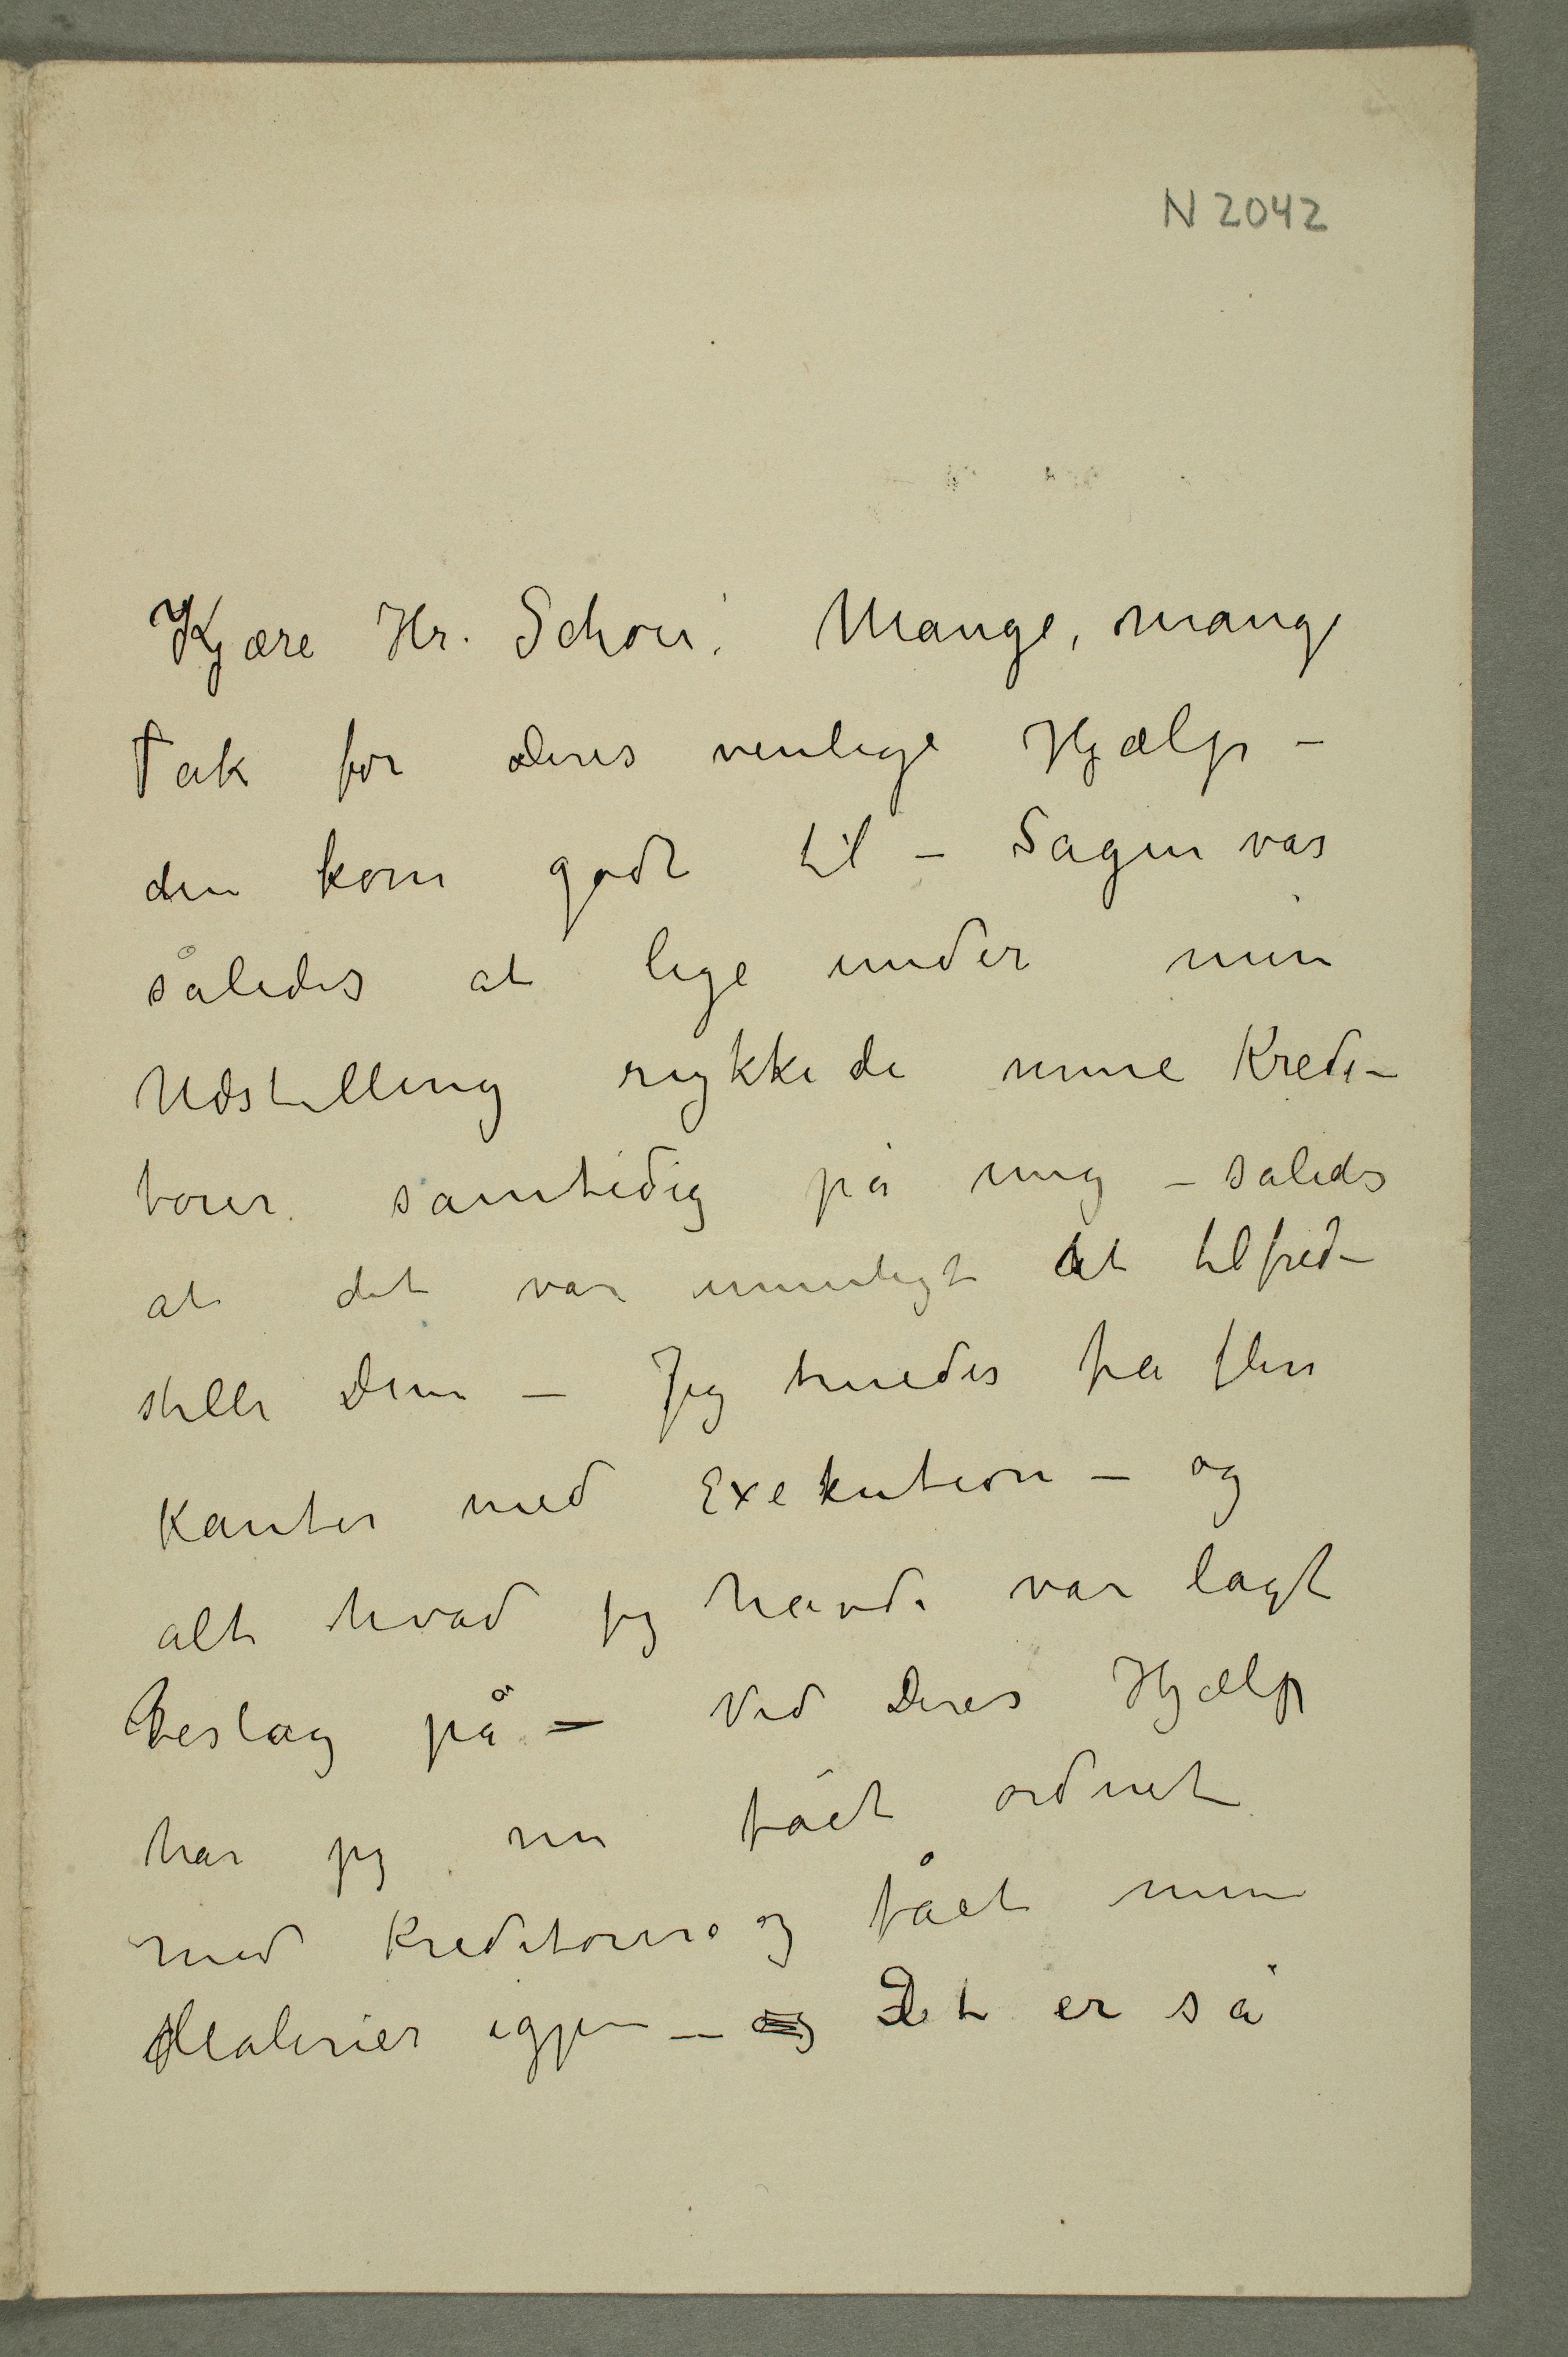 N 2042
Kjære Hr. Schou! Mange, mange
Tak for Deres venlige Hjælp –
den kom godt til – Sagen var
således at lige under min
Udstilling rykkede mine Kredi-
torer samtidig på mig – således
at det var umuligt at tilfred-
stille dem – Jeg truedes fra flere
Kanter med Exekution – og
alt hvad jeg havde var lagt
beslag på – Ved Deres Hjælp
har jeg nu fået ordnet
med Kreditorer og fået mine
Malerier igjen – og Det er så